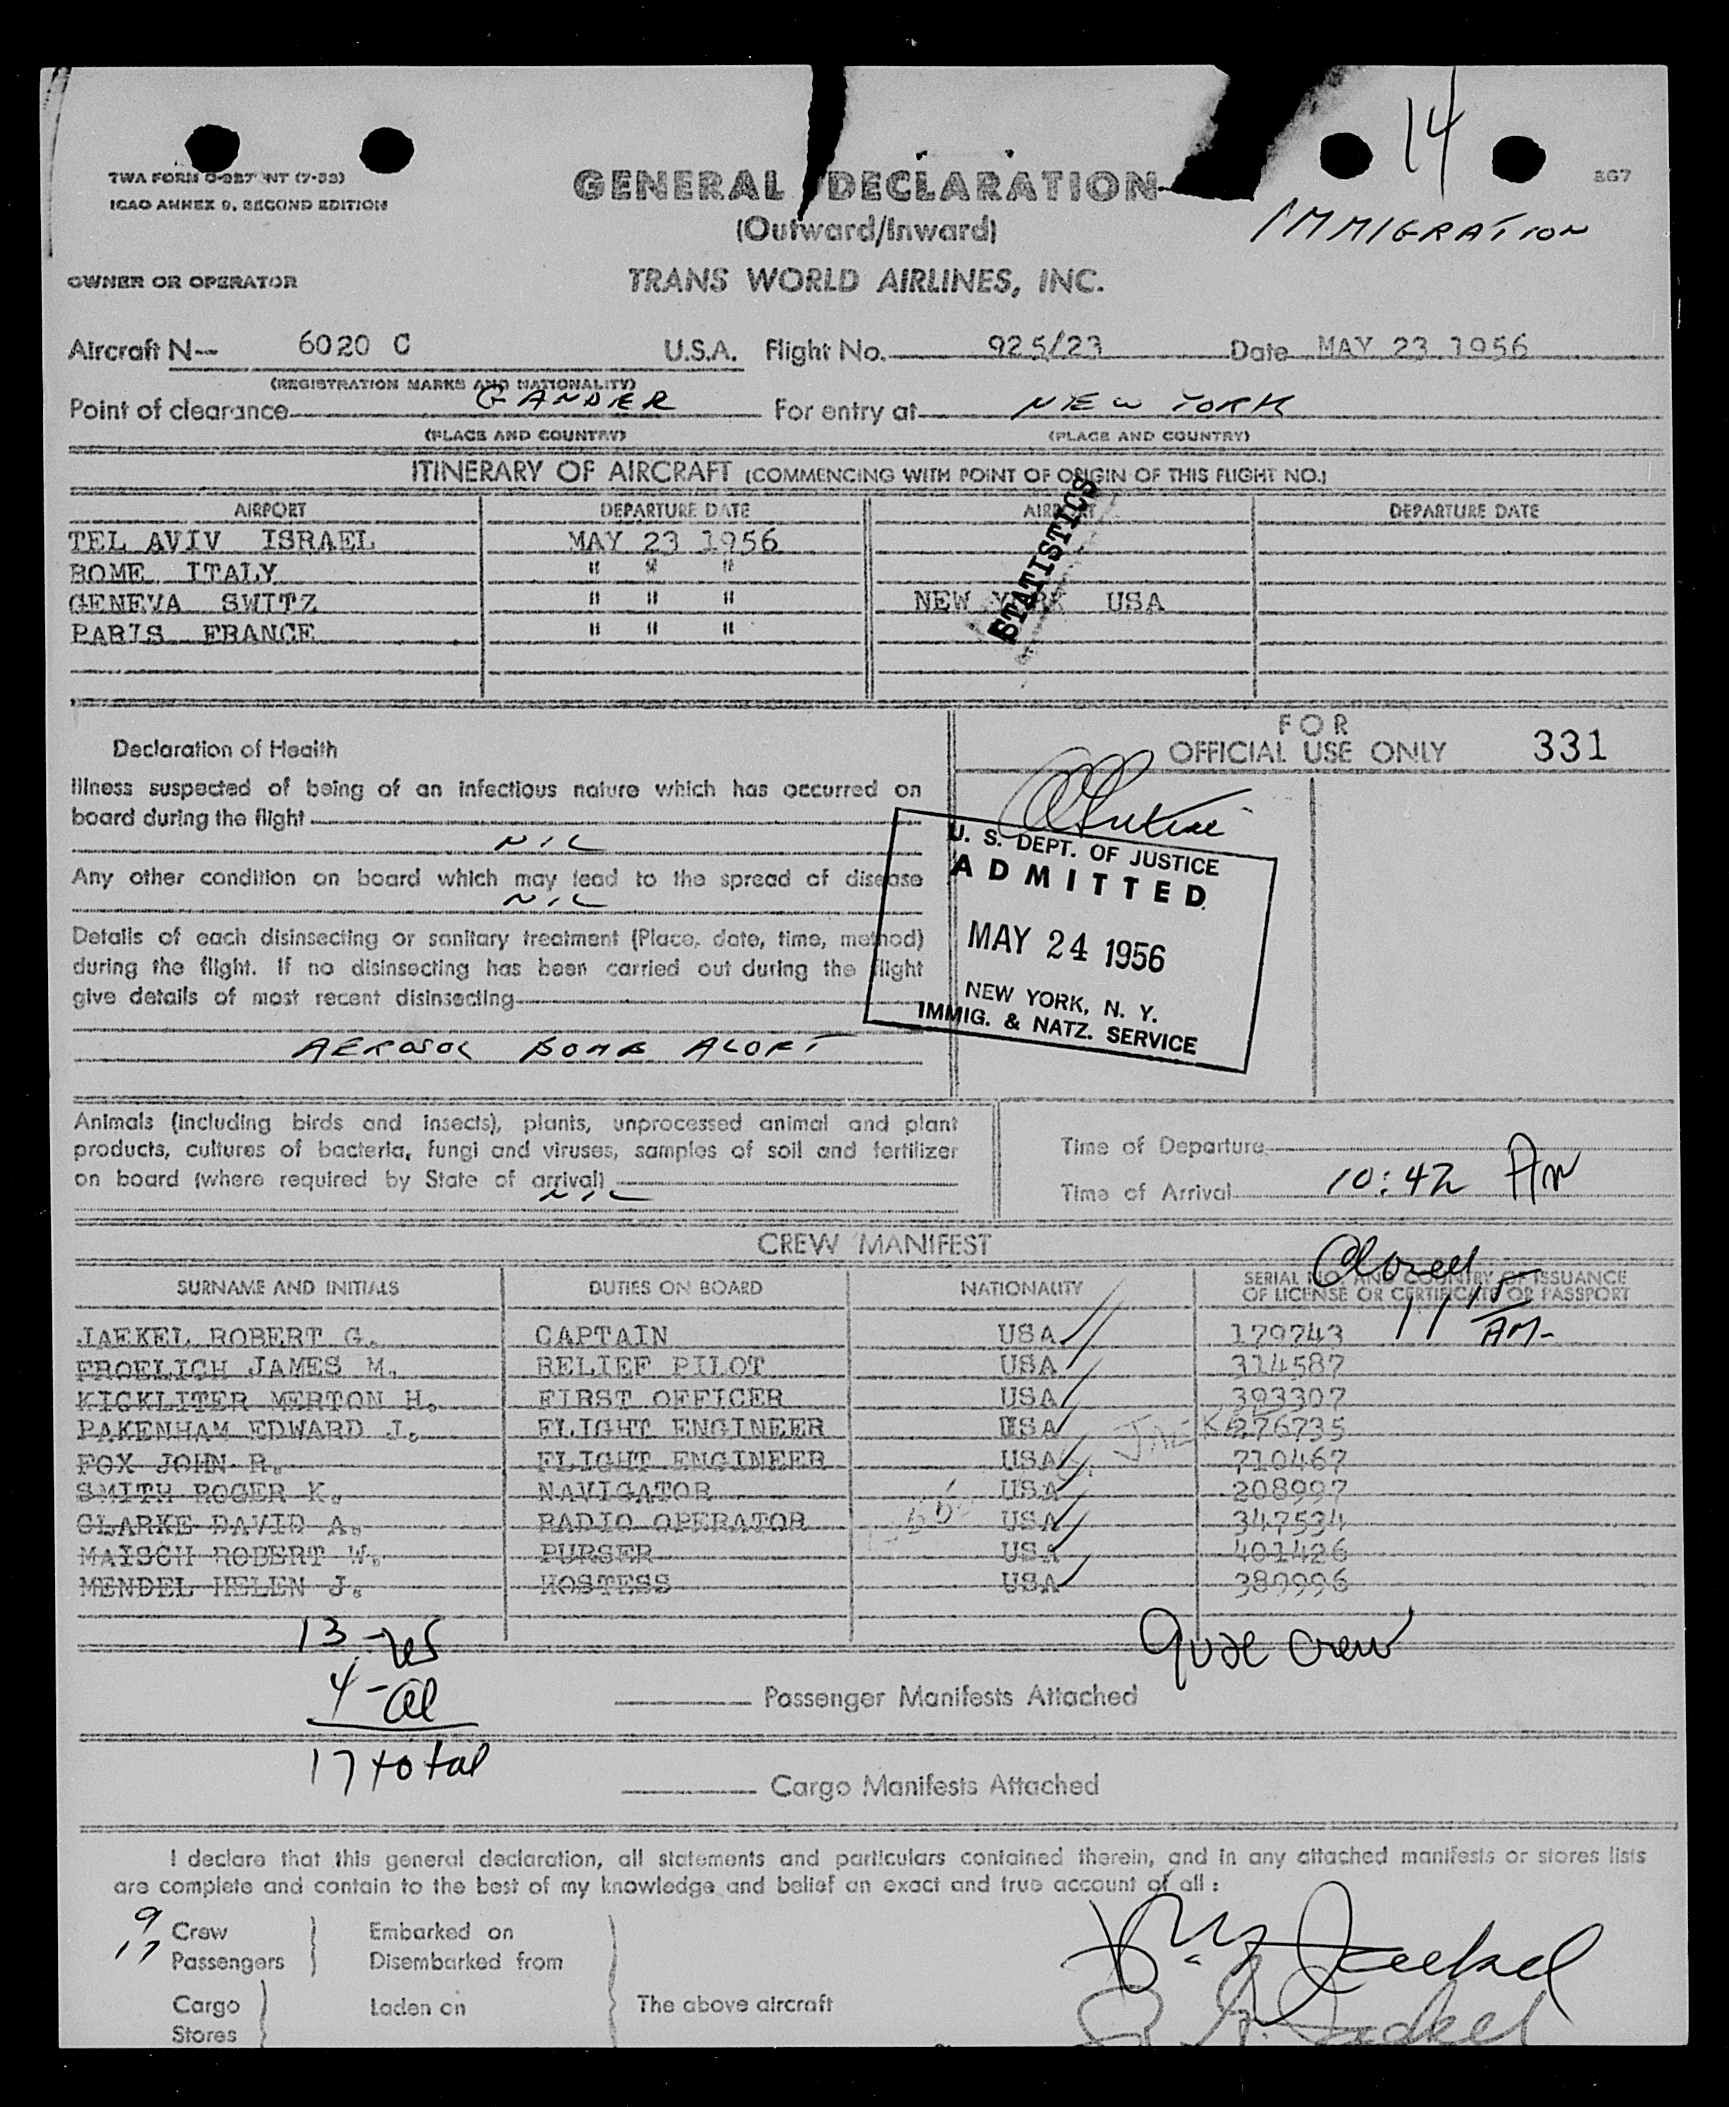 14
TWA FORM
ICAO ANNEX 9, SECOND EDITION
GENERAL DECLARATION
(Outward/Inward)
IMMIGRATION
OWNER OR OPERATOR
TRANS WORLD AIRLINES, INC.
Aircraft N-- 6020 C U.S.A. Flight No. 925/23 Date MAY 23 1956
(REGISTRATION MARKS AND NATIONALITY)
Point of clearance GANDER For entry at NEW YORK
(PLACE AND COUNTRY) (PLACE AND COUNTRY)
ITINERARY OF AIRCRAFT (COMMENCING WITH POINT OF ORIGIN OF THIS FLIGHT NO.)
AIRPORT DEPARTURE DATE AIRPORT DEPARTURE DATE
STATISTICS
TEL AVIV ISRAEL MAY 23 1956
ROME ITALY " " "
GENEVA SWITZ " " " NEW YORK USA
PARIS FRANCE " " "
FOR
OFFICIAL USE ONLY 331
Declaration of Health
Illness suspected of being of an infectious nature which has occurred on
board during the flight
NIL
Any other condition on board which may lead to the spread of disease
NIL
Details of each disinsecting or sanitary treatment (Place, date, time, method)
during the flight. If no disinsecting has been carried out during the flight
give details of most recent disinsecting
AEROSOL BOMB ALOFT
U. S. DEPT. OF JUSTICE
ADMITTED
MAY 24 1956
NEW YORK, N. Y.
IMMIG. & NATZ. SERVICE
Animals (including birds and insects), plants, unprocessed animal and plant
products, cultures of bacteria, fungi and viruses, samples of soil and fertilizer
on board (where required by State of arrival)
NIL
Time of Departure
Time of Arrival 10:42 AM
CREW MANIFEST
Closed
11 15
AM-
SURNAME AND INITIALS DUTIES ON BOARD NATIONALITY SERIAL NO. AND COUNTRY OF ISSUANCE
OF LICENSE OR CERTIFICATE OR PASSPORT
JAEKEL ROBERT G. CAPTAIN USA 179743
FROELICH JAMES M. RELIEF PILOT USA 314587
KICKLITER MERTON H. FIRST OFFICER USA 393307
PAKENHAM EDWARD J. FLIGHT ENGINEER USA 276735
FOX JOHN R. FLIGHT ENGINEER USA 710467
SMITH ROGER K. NAVIGATOR USA 208997
CLARKE DAVID A. RADIO OPERATOR USA 347534
MAISCH ROBERT W. PURSER USA 401426
MENDEL HELEN J. HOSTESS USA 380996
13-
4-al
17 total
crew
Passenger Manifests Attached
Cargo Manifests Attached
I declare that this general declaration, all statements and particulars contained therein, and in any attached manifests or stores lists
are complete and contain to the best of my knowledge and belief an exact and true account of all:
9 Crew Embarked on
17 Passengers Disembarked from
Cargo Laden on The above aircraft
Stores